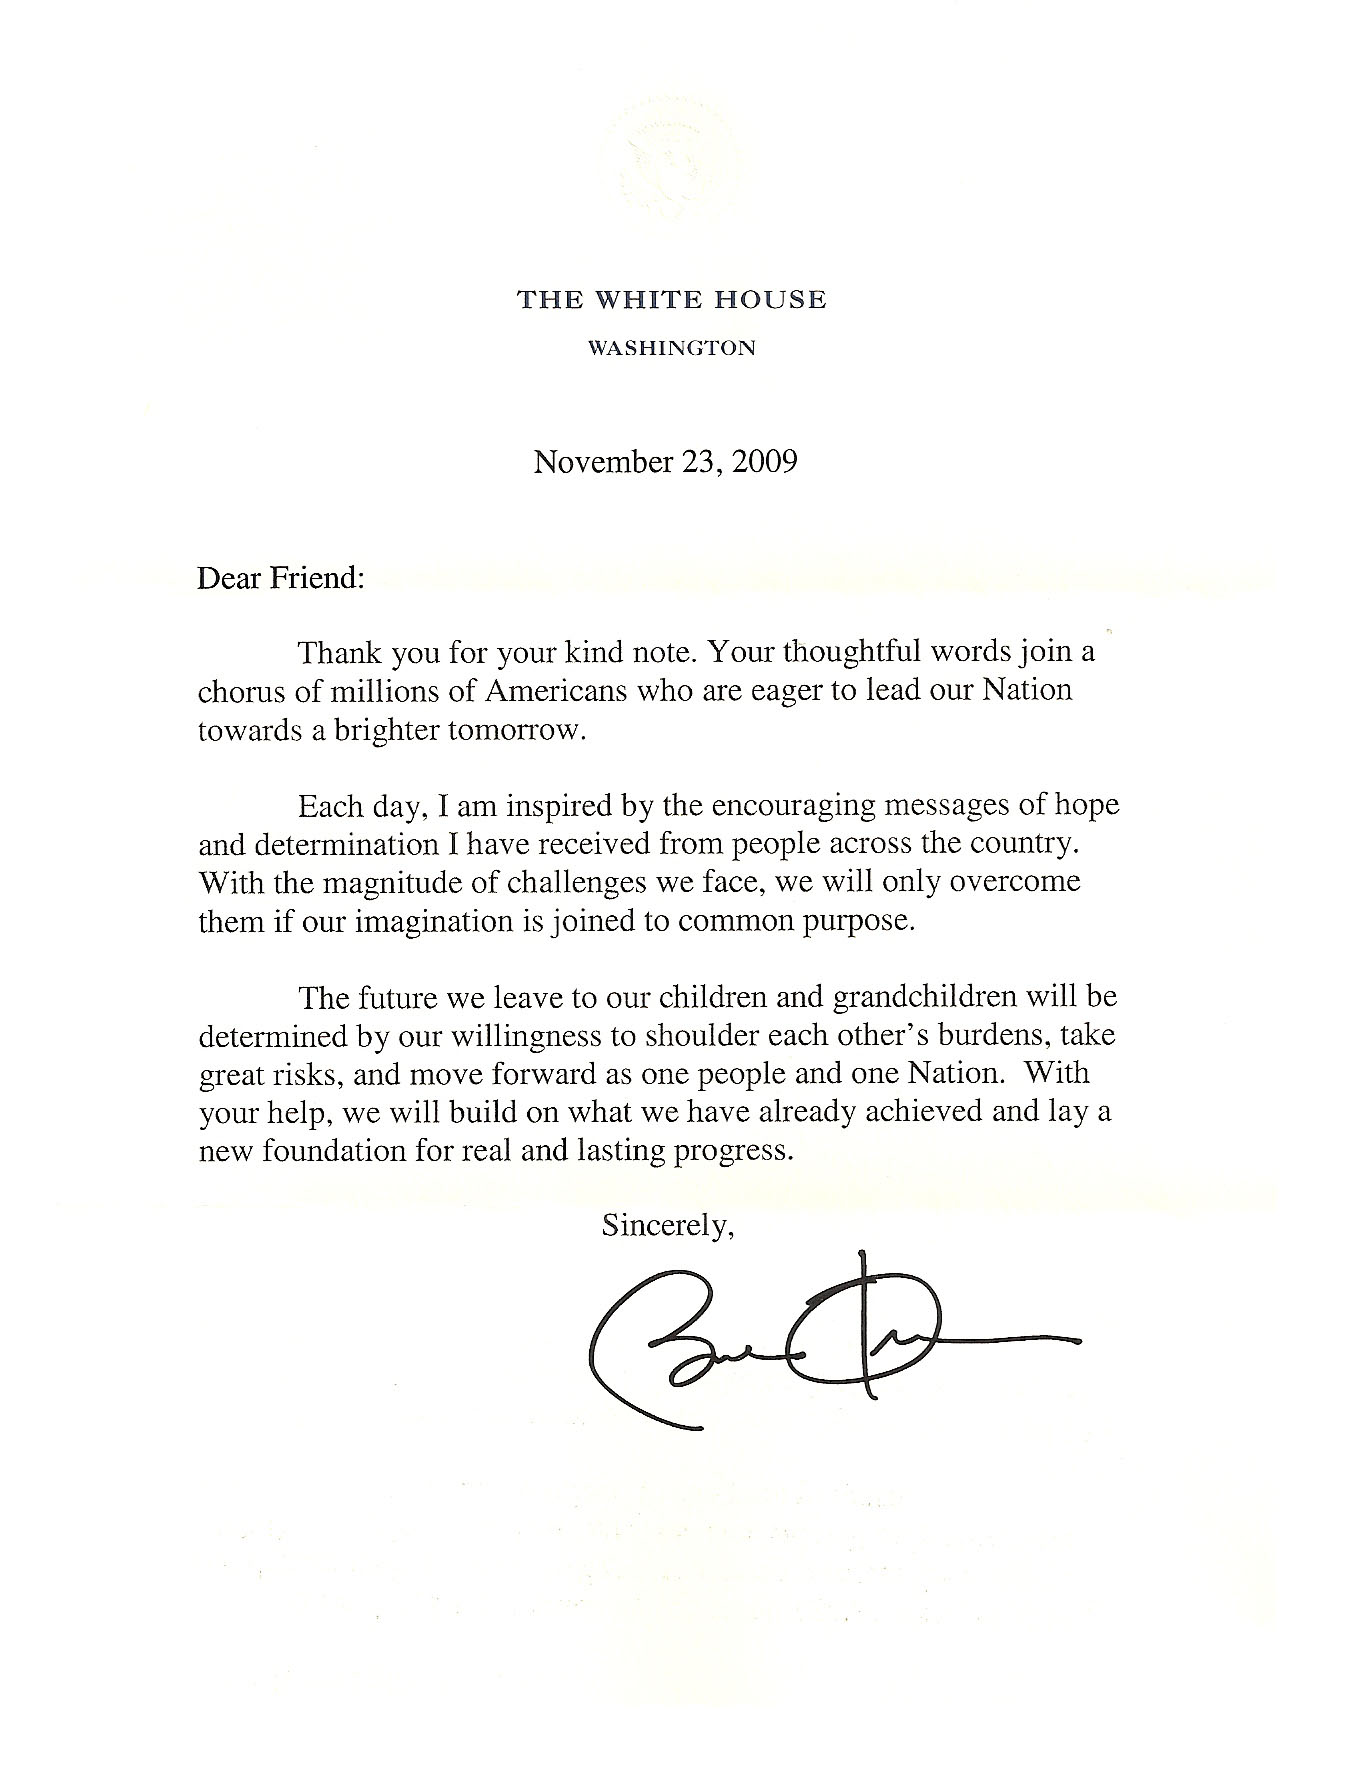 THE WHITE HOUSE
WASHINGTON
November 23, 2009
Dear Friend:
Thank you for your kind note. Your thoughtful words join a
chorus of millions of Americans who are eager to lead our Nation
towards a brighter tomorrow.
Each day, I am inspired by the encouraging messages of hope
and determination I have received from people across the country.
With the magnitude of challenges we face, we will only overcome
them if our imagination is joined to common purpose.
The future we leave to our children and grandchildren will be
determined by our willingness to shoulder each other's burdens, take
great risks, and move forward as one people and one Nation.  With
your help, we will build on what we have already achieved and lay a
new foundation for real and lasting progress.
Sincerely,